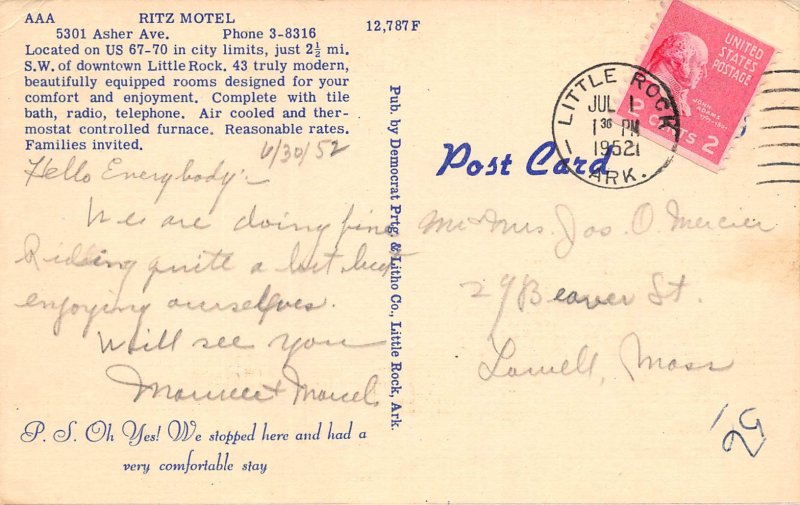 AAA RITZ MOTEL
5301 Asher Ave. Phone 3-8316
Located on US 67-70 in city limits, just 2½ mi.
S.W. of downtown Little Rock. 43 truly modern,
beautifully equipped rooms designed for your
comfort and enjoyment. Complete with tile
bath, radio, telephone. Air cooled and ther-
mostat controlled furnace. Reasonable rates.
Families invited.
6/30/52
Hello Everybody:—
We are doing fine
Riding quite a bit but
enjoying ourselves.
Will see you
Maurice + Marcel
P. S. Oh Yes! We stopped here and had a
very comfortable stay
12,787F
Pub. by Democrat Prtg. & Litho Co., Little Rock, Ark.
Post Card
LITTLE ROCK
JUL 1
1 30 PM
1952
ARK.
UNITED
STATES
POSTAGE
JOHN
ADAMS
1797-1801
2 CENTS 2
Mr & Mrs. Jos. O. Mercier
29 Beaver St.
Lowell, Mass